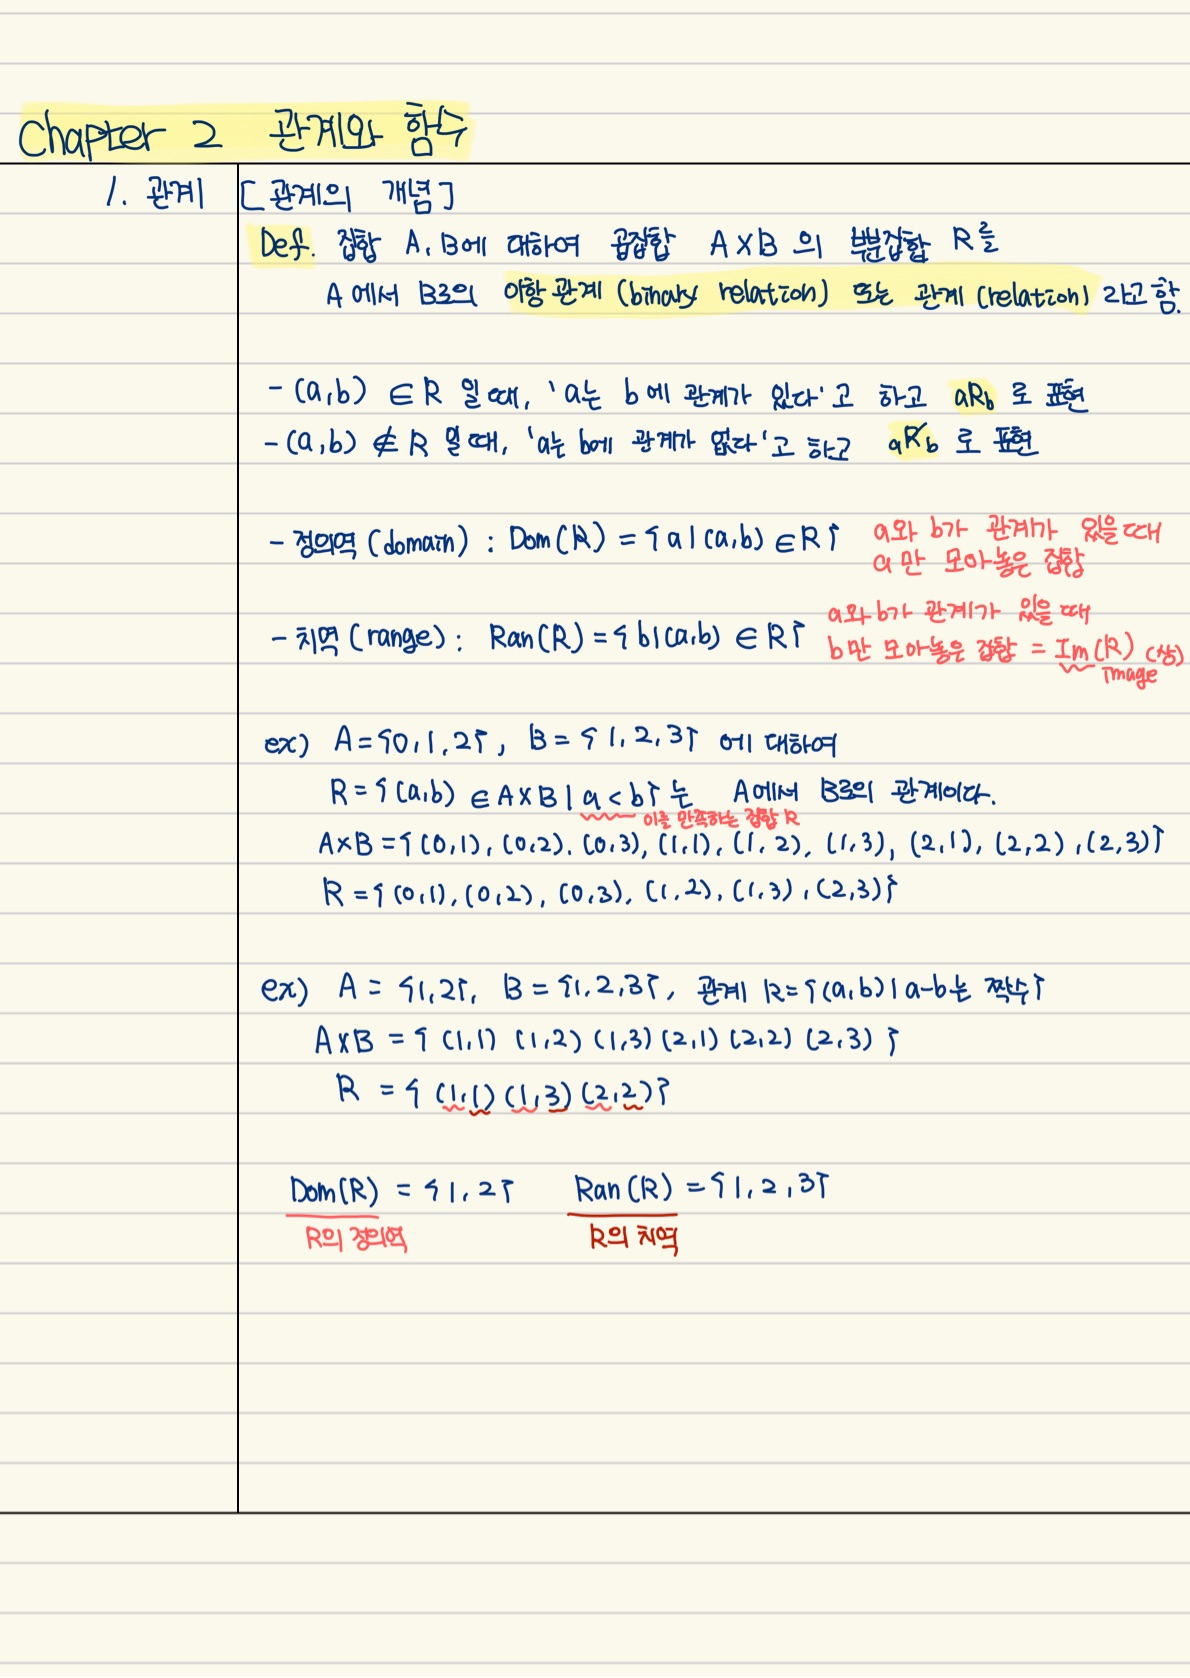 Chapter 2 관계와 함수
1. 관계
[관계의 개념]
Def. 집합 A, B에 대하여 곱집합 A×B 의 부분집합 R를
A에서 B로의 이항관계 (binary relation) 또는 관계 (relation) 라고 함.
- (a,b) ∈ R 일 때, 'a는 b에 관계가 있다'고 하고 aRb 로 표현
- (a,b) ∉ R 일 때, 'a는 b에 관계가 없다'고 하고 aR̸b 로 표현
- 정의역 (domain) : Dom(R) = {a | (a,b) ∈ R}
a와 b가 관계가 있을 때
a만 모아놓은 집합
- 치역 (range) : Ran(R) = {b | (a,b) ∈ R}
a와 b가 관계가 있을 때
b만 모아놓은 집합 = Im(R) (상)
image
ex) A = {0, 1, 2}, B = {1, 2, 3} 에 대하여
R = {(a,b) ∈ A×B | a < b} 는 A에서 B로의 관계이다.
이를 만족하는 집합 R
A×B = {(0,1), (0,2), (0,3), (1,1), (1,2), (1,3), (2,1), (2,2), (2,3)}
R = {(0,1), (0,2), (0,3), (1,2), (1,3), (2,3)}
ex) A = {1,2}, B = {1,2,3}, 관계 R = {(a,b) | a-b는 짝수}
A×B = { (1,1) (1,2) (1,3) (2,1) (2,2) (2,3) }
R = { (1,1) (1,3) (2,2) }
Dom(R) = {1, 2} Ran(R) = {1, 2, 3}
R의 정의역 R의 치역